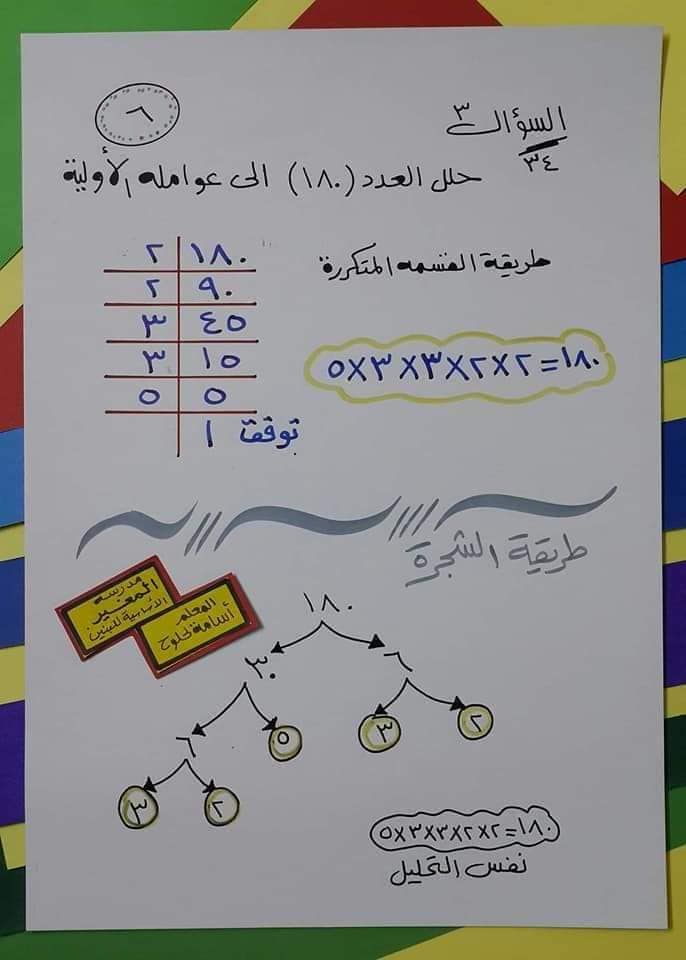 ٦
السؤال ٣
٣٤
حلل العدد (١٨٠) الى عوامله الأولية
طريقة القسمه المتكررة
١٨٠ ٢
٩٠ ٢
٤٥ ٣
١٥ ٣
٥ ٥
١ توقف
١٨٠=٢×٢×٣×٣×٥
طريقة الشجرة
مدرسة
المغير
الأساسية للبنين
المعلم
أسامة لحلوح
١٨٠
٣٠ ٦
٦ ٥ ٣ ٢
٣ ٢
١٨٠=٢×٢×٣×٣×٥
نفس التحليل